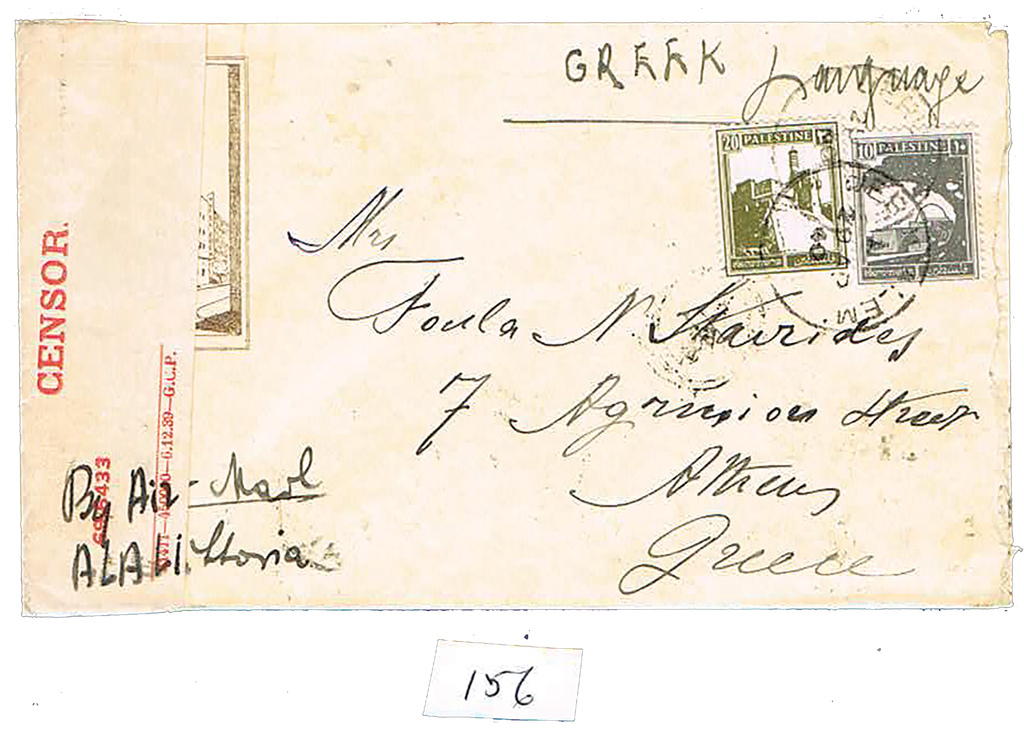 GREEK Language
20 PALESTINE
10 PALESTINE
CENSOR.
Mrs
Foula N. Stavrides
7 Street
Athens
Greece
450000—6.12.39—G.C.P.
By Air-Mail
ALA Littoria
156